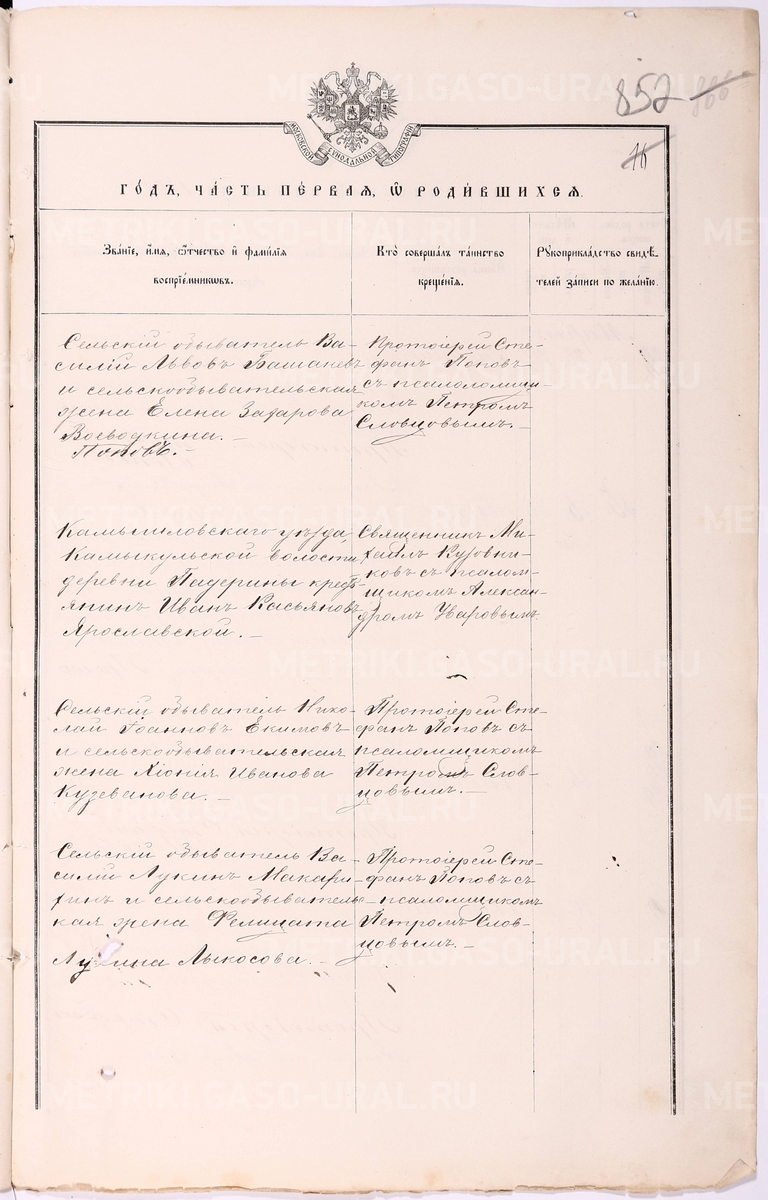 852
МОСКОВСКОЙ СѴНОДАЛЬНОЙ ТИПОГРАФІИ
ГОДЪ, ЧАСТЬ ПЕРВАЯ, Ѡ РОДИВШИХСЯ.
Званіе, имя, отчество и фамилія
воспріемниковъ.
Кто совершалъ таинство
крещенія.
Рукоприкладство свидѣ-
телей записи по желанію.
Сельскій обыватель Ва-
силій Львовъ
и сельскообывательская
жена Елена Захарова
Воеводкина.-
Поповъ.-
Протоіерей Сте-
фанъ Поповъ
съ псаломщи-
комъ Петромъ
Словцовымъ.-
Камышловскаго уѣзда,
Камыкульской волости
деревни Падерины кресть-
янинъ Иванъ Касьяновъ
Ярославской.-
Священникъ Ми-
хаилъ Куровни-
ковъ съ псалом-
щикомъ Алексан-
дромъ Уваровымъ
Сельскій обыватель Нико-
лай Іоанновъ Екимовъ
и сельскообывательская
жена Хіонія Иванова
Кузеванова.-
Протоіерей Сте-
фанъ Поповъ съ
псаломщикомъ
Петромъ Слов-
цовымъ.-
Сельскій обыватель Ва-
силій Лукинъ Макари-
хинъ и сельскообыватель-
кая жена Фелицата
Лыкосова.-
Протоіерей Сте-
фанъ Поповъ съ
псаломщикомъ
Петромъ Слов-
цовымъ.-
METRIKI.GASO-URAL.RU